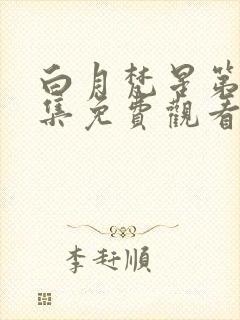 白月梵星第
集免費觀看
李玨順